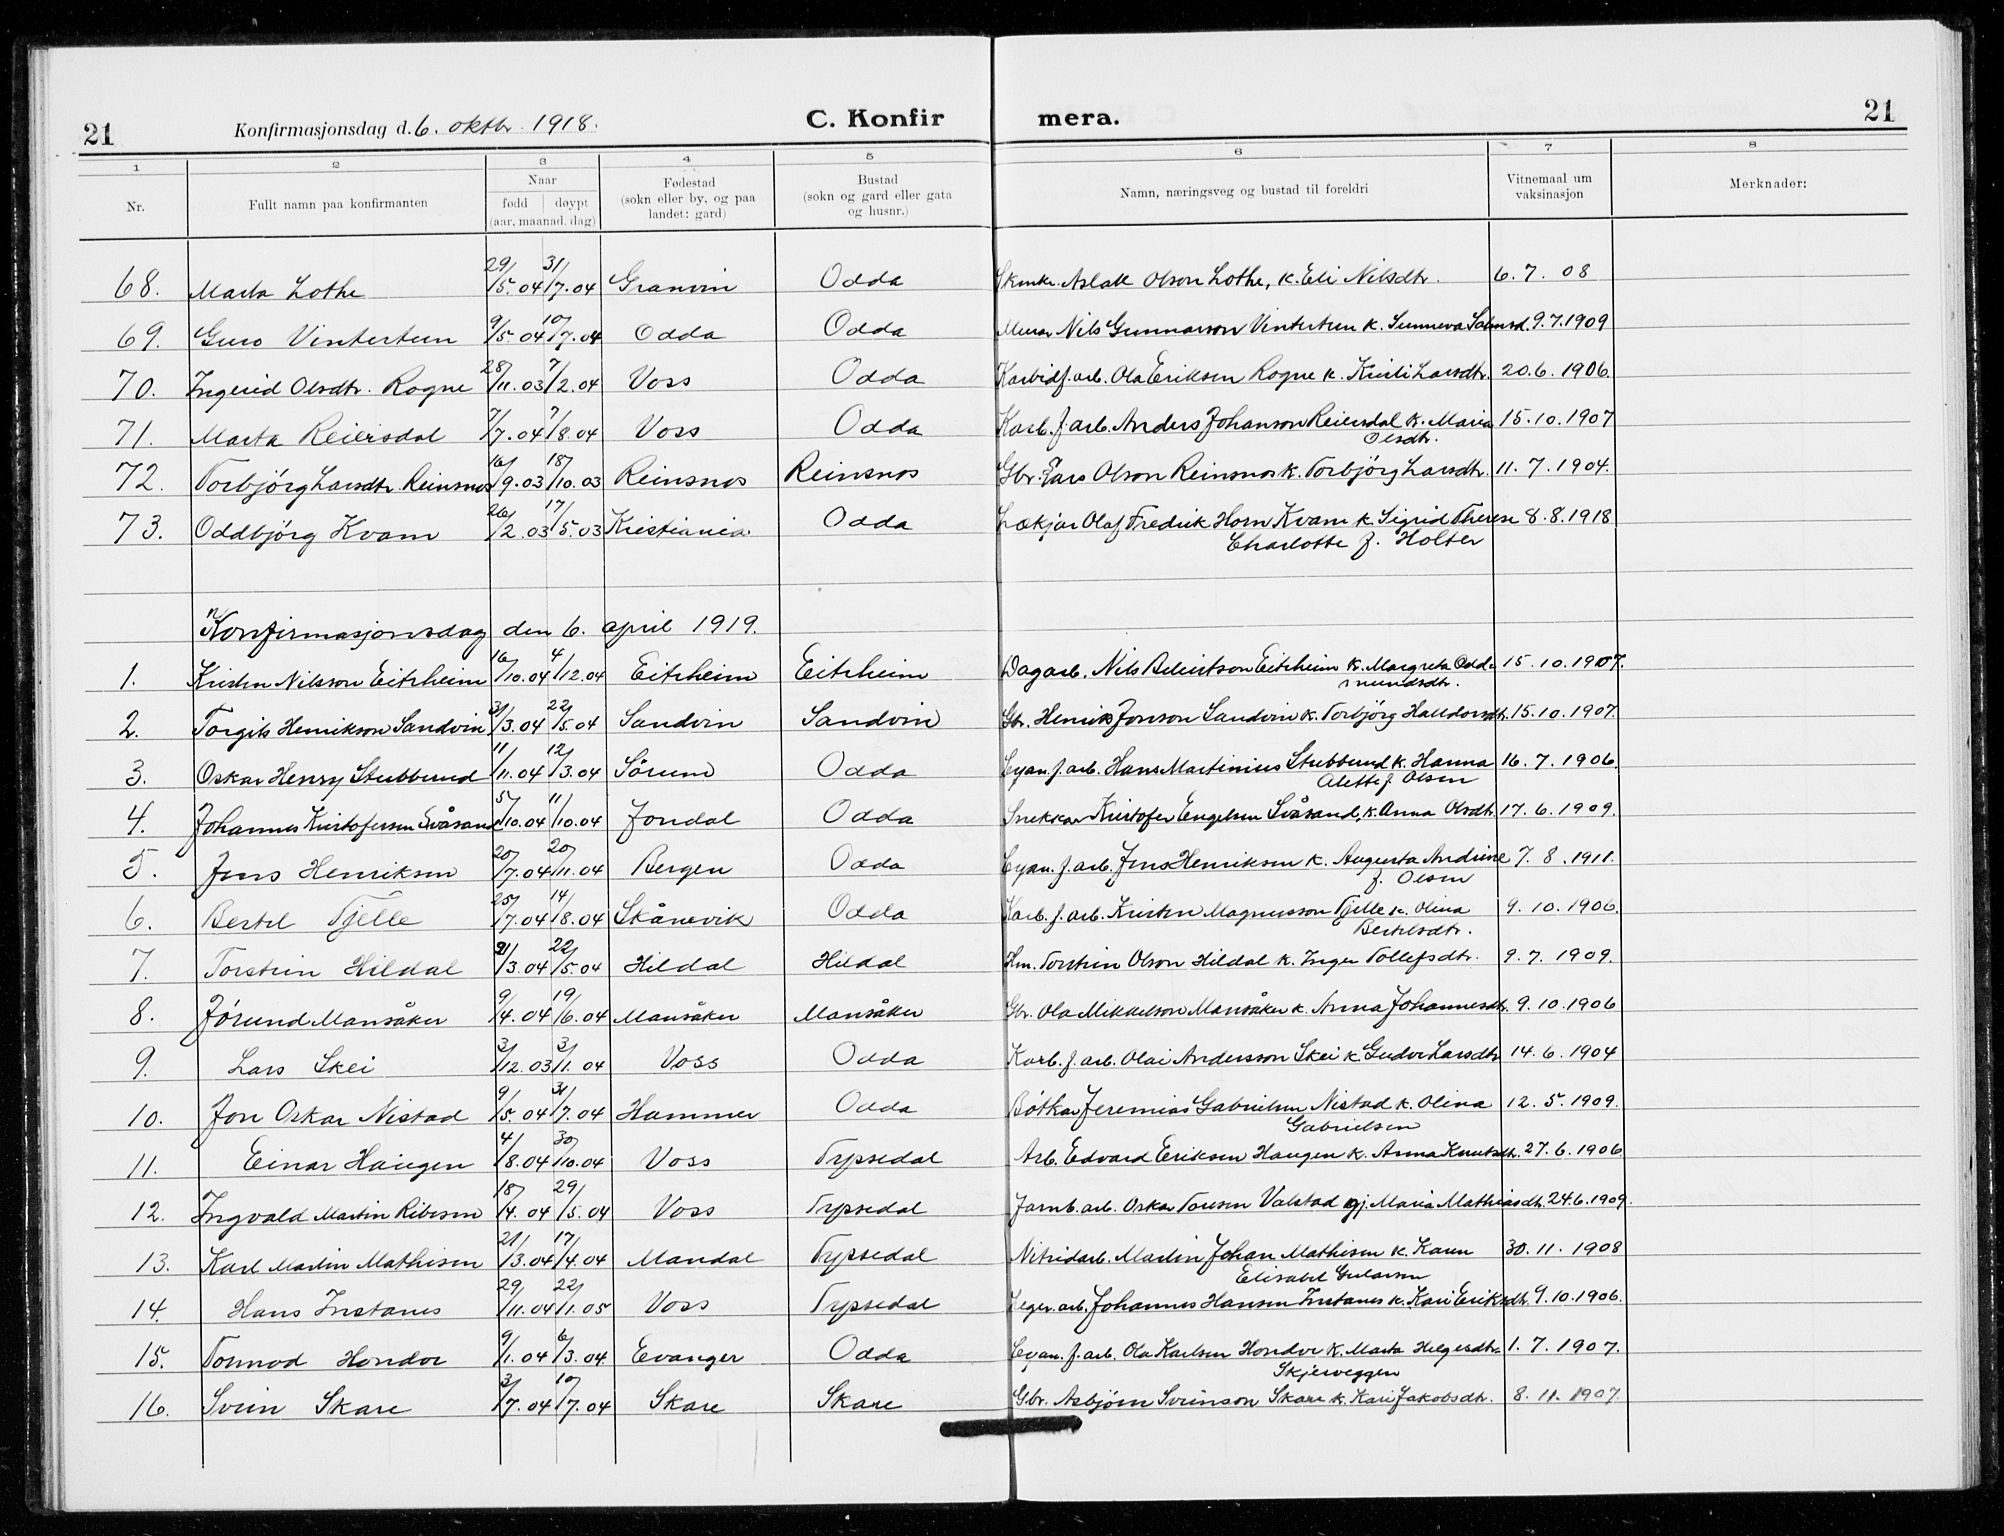 21 Konfirmasjonsdag d. 6. oktbr. 1918. C. Konfir mera. 21
1 2 3 4 5 6 7 8
Nr. Fullt namn paa konfirmanten Naar fødd døypt (aar, maanad, dag) Fødestad (sokn eller by, og paa landet: gard) Bustad (sokn og gard eller gata og husnr.) Namn, næringsveg og bustad til foreldri Vitnemaal um vaksinasjon Merknader:
68. Marta Lothe 29/5.04 31/7.04 Granvin Odda Aslak Olson Lothe, k. Eli Nilsdtr. 6. 7. 08
69. Guro Vintertun 9/5.04 10/7.04 Odda Odda Murar Nils Gunnarson Vintertun k. Sunneva 9.7.1909
70. Ingerid Olsdtr. Rogne 28/11.03 7/2.04 Voss Odda Karbidf. arb. Ola Eriksen Rogne k. Kirsti Larsdtr. 20.6.1906
71. Marta Reiersdal 7/7.04 7/8.04 Voss Odda Karb. f. arb. Anders Johanson Reiersdal k. Maria 15.10.1907
Olsdtr.
72. Torbjörg Larsdtr. Reinsnos 16/9.03 18/10.03 Reinsnos Reinsnos Gbr. Lars Olson Reinsnos k. Torbjörg Larsdtr. 11.7.1904.
73. Oddbjörg Kvam 26/2.03 17/5.03 Kristiania Odda Lækjar Olaf Fredrik Horn Kvam k. Sigrid Therese 8.8.1918
Charlotte f. Holter
Konfirmasjonsdag den 6. april 1919.
1. Kristen Nilsson Eitrheim 16/10.04 4/12.04 Eitrheim Eitrheim Dagarb. Nils Eitrheim k. Margreta Odd- 15.10.1907.
mundsdtr.
2. Torgils Henrikson Sandvin 31/3.04 22/5.04 Sandvin Sandvin Gbr. Henrik Jonson Sandvin k. Torbjörg Halldorsdtr. 15.10.1907.
3. Oskar Henry Stubberud 11/11.04 12/3.04 Sörum Odda Cyan. f. arb. Hans Martinius Stubberud k. Hanna 16.7.1906.
Alette f. Olsen
4. Johannes Kristofersen Svåsand 5/10.04 11/10.04 Jondal Odda Snekkar Kristofer Engelsen Svåsand, k. Anna Olsdtr. 17.6.1909.
5. Jens Henriksen 20/7.04 20/11.04 Bergen Odda Cyan. f. arb. Jens Henriksen k. Augusta Andrine 7.8.1911.
f. Olsen
6. Bertel Tjelle 25/7.04 14/8.04 Skånevik Odda Karb. f. arb. Kristen Magnusson Tjelle k. Olina 9.10.1906.
Bertelsdtr.
7. Torstein Hildal 21/3.04 22/5.04 Hildal Hildal Hm. Torstein Olson Hildal k. Inger Tollefsdtr. 9.7.1909.
8. Jórund Mansåker 9/4.04 19/6.04 Mansåker Mansåker Gbr. Ola Mikkelson Mansåker k. Anna Johannesdtr. 9.10.1906
9. Lars Skei 3/12.03 3/1.04 Voss Odda Karb. f. arb. Olai Andersson Skei k. Gudve Larsdtr 14.6.1904
10. Jon Oskar Nistad 9/5.04 31/7.04 Hammer Odda Bötkar Jeremias Gabrielsen Nistad k. Olina 12.5.1909.
Gabrielsen
11. Einar Haugen 4/8.04 30/10.04 Voss Tyssedal Arb. Edvard Eriksen Haugen k. Anna Knutsdtr. 27.6.1906
12. Ingvald Martin Ribesen 18/4.04 29/5.04 Voss Tyssedal Jarnb. arb. Oskar Toresen Valstad gj. Maria Mathiasdtr. 24.6.1909.
13. Karl Martin Mathisen 21/3.04 17/4.04 Mandal Tyssedal Nitridarb. Martin Johan Mathisen k. Karen 30.11.1908
Elisabet
14. Hans Instanes 29/11.04 22/1.05 Voss Tyssedal Leger. arb. Johannes Hansen Instanes k. Kari Eriksdtr. 9.10.1906.
15. Tormod Hondve 9/1.04 6/3.04 Evanger Odda Cyan. f. arb. Ola Karlsen Hondve k. Marta Helgesdtr. 1.7.1907.
Skjerveggen
16. Svein Skare 3/7.04 10/7.04 Skare Skare Gbr. Asbjörn Sveinson Skare k. Kari Jakobsdtr. 8.11.1907.